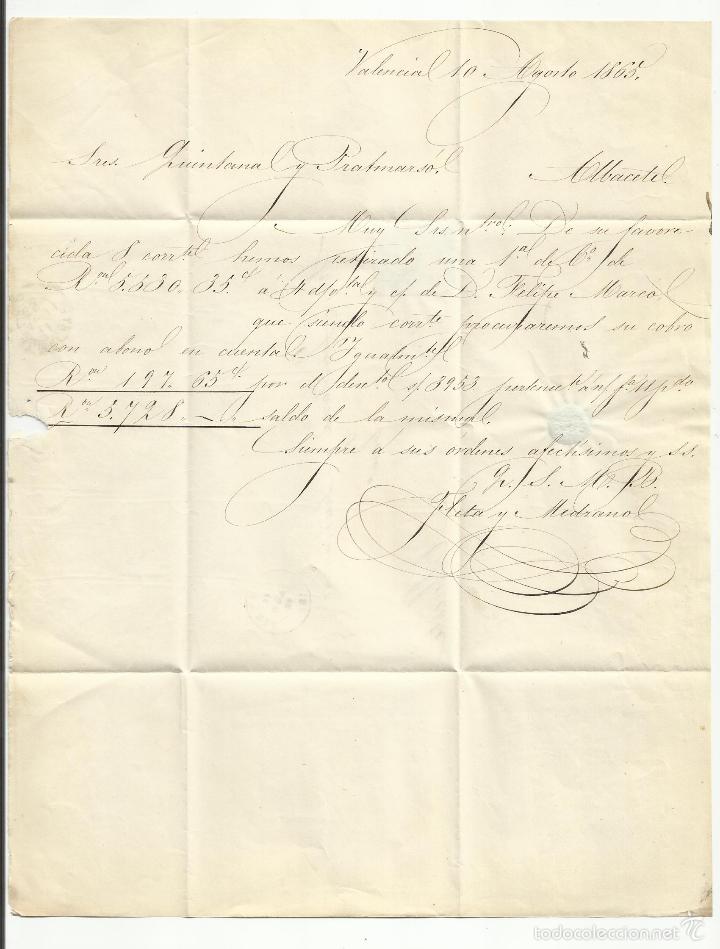 Valencia 10 Agosto 1865.
Sres. Quintana y Pratmarsó.
Albacete.
Muy Srs. ntros: De su favore-
cida 8 corrte hemos retirado una 1a de Co de
Ron 5.530. 35 cs a 4 d/
y c/ de D. Felipe Marco
que siendo corrte procuraremos su cobro
con abono en cuenta é Igualmte
Ron 197. 65 cs por el s/ 3953
Ron 5.728. -,, saldo de la misma.
Siempre á sus ordenes afectísimos y s.s.
Q. S. M. B.
Fleta y Medrano
todocoleccion.net